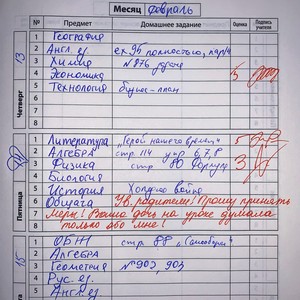 Месяц февраль
Предмет Домашнее задание Оценка Подпись учителя
13 Четверг
1 География
2 Англ. яз. ех 95 полностью,
3 Химия №876 устно
4 Экономика 5
5 Технология бизнес-план
6
7
8
14 Пятница
1 Литература „Герой нашего времени“ 5
2 АЛГЕБРА стр. 114 упр 6,7,8
3 Физика стр 80 Формулы 3
4 Биология
5 История Холодная война
6 Общага Ув. родители! Прошу принять
7 Меры! Ваша дочь на уроке думала
8 только обо мне!
15
1 ОБЖ стр 88
2 Алгебра
3 Геометрия №902, 903
4 Рус. яз.
5 Англ. яз